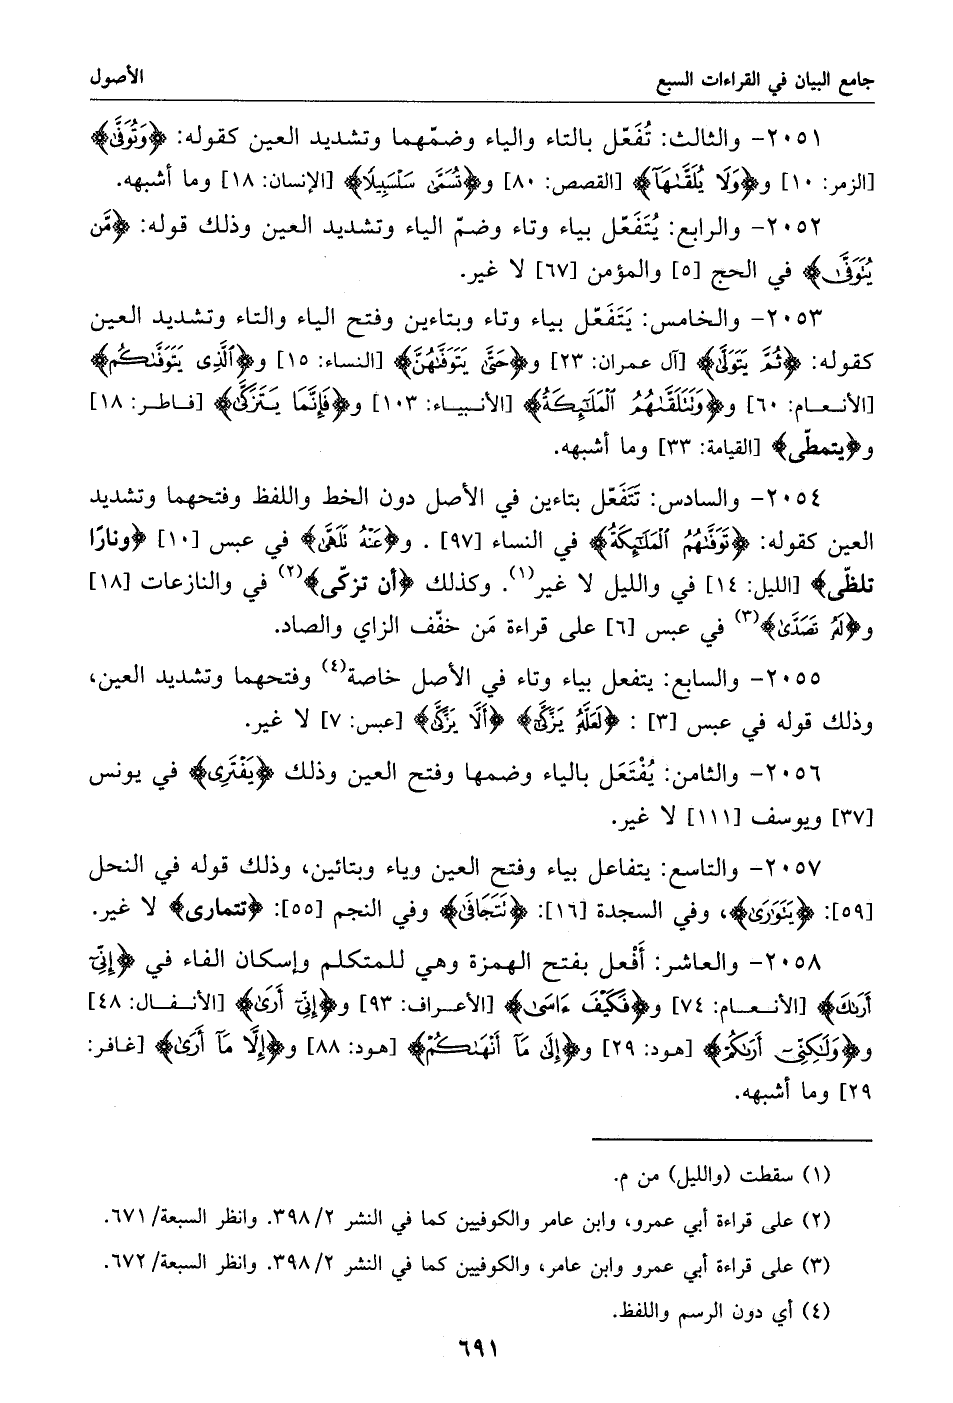 جامع البيان في القراءات السبع
الأصول
٢٠٥١- والثالث: تُفَعّل بالتاء والياء وضمّهما وتشديد العين كقوله: ﴿وَتُوَفَّىٰ﴾
[الزمر: ١٠] و﴿وَلَا يُلَقَّىٰهَآ﴾ [القصص: ٨٠] و﴿تُسَمَّىٰ سَلْسَبِيلًا﴾ [الإنسان: ١٨] وما أشبهه.
٢٠٥٢- والرابع: يُتَفَعّل بياء وتاء وضمّ الياء وتشديد العين وذلك قوله: ﴿مَّن
يُتَوَفَّىٰ﴾ في الحج [٥] والمؤمن [٦٧] لا غير.
٢٠٥٣- والخامس: يَتَفَعّل بياء وتاء وبتاءين وفتح الياء والتاء وتشديد العين
كقوله: ﴿ثُمَّ يَتَوَلَّىٰ﴾ [آل عمران: ٢٣] و﴿حَتَّىٰ يَتَوَفَّىٰهُنَّ﴾ [النساء: ١٥] و﴿ٱلَّذِى يَتَوَفَّىٰكُم﴾
[الأنعام: ٦٠] و﴿وَتَتَلَقَّىٰهُمُ ٱلْمَلَٰٓئِكَةُ﴾ [الأنبياء: ١٠٣] و﴿فَإِنَّمَا يَتَزَكَّىٰ﴾ [فاطر: ١٨]
و﴿يتمطّى﴾ [القيامة: ٣٣] وما أشبهه.
٢٠٥٤- والسادس: تَتَفَعّل بتاءين في الأصل دون الخط واللفظ وفتحهما وتشديد
العين كقوله: ﴿تَوَفَّىٰهُمُ ٱلْمَلَٰٓئِكَةُ﴾ في النساء [٩٧] . و﴿عَنْهُ تَلَهَّىٰ﴾ في عبس [١٠] ﴿ونارًا
تلظّى﴾ [الليل: ١٤] في والليل لا غير(١). وكذلك ﴿أن تزكّى﴾(٢) في والنازعات [١٨]
و﴿لَهُۥ تَصَدَّىٰ﴾(٣) في عبس [٦] على قراءة مَن خفّف الزاي والصاد.
٢٠٥٥- والسابع: يتفعل بياء وتاء في الأصل خاصة(٤) وفتحهما وتشديد العين،
وذلك قوله في عبس [٣] : ﴿لَعَلَّهُۥ يَزَّكَّىٰٓ﴾ ﴿أَلَّا يَزَّكَّىٰ﴾ [عبس: ٧] لا غير.
٢٠٥٦- والثامن: يُفْتَعَل بالياء وضمها وفتح العين وذلك ﴿يَفْتَرِى﴾ في يونس
[٣٧] ويوسف [١١١] لا غير.
٢٠٥٧- والتاسع: يتفاعل بياء وفتح العين وياء وبتائين، وذلك قوله في النحل
[٥٩]: ﴿يَتَوَٰرَىٰ﴾، وفي السجدة [١٦]: ﴿تَتَجَافَىٰ﴾ وفي النجم [٥٥]: ﴿تتمارى﴾ لا غير.
٢٠٥٨- والعاشر: أَفْعل بفتح الهمزة وهي للمتكلم وإسكان الفاء في ﴿إِنِّىٓ
أَرَىٰكَ﴾ [الأنعام: ٧٤] و﴿فَكَيْفَ ءَاسَىٰ﴾ [الأعراف: ٩٣] و﴿إِنِّىٓ أَرَىٰ﴾ [الأنفال: ٤٨]
و﴿وَلَٰكِنِّىٓ أَرَىٰكُمْ﴾ [هود: ٢٩] و﴿إِلَىٰ مَآ أَنْهَىٰكُمْ﴾ [هود: ٨٨] و﴿إِلَّا مَآ أَرَىٰ﴾ [غافر:
٢٩] وما أشبهه.
(١) سقطت (والليل) من م.
(٢) على قراءة أبي عمرو، وابن عامر والكوفيين كما في النشر ٢/ ٣٩٨. وانظر السبعة/ ٦٧١.
(٣) على قراءة أبي عمرو وابن عامر، والكوفيين كما في النشر ٢/ ٣٩٨. وانظر السبعة/ ٦٧٢.
(٤) أي دون الرسم واللفظ.
٦٩١